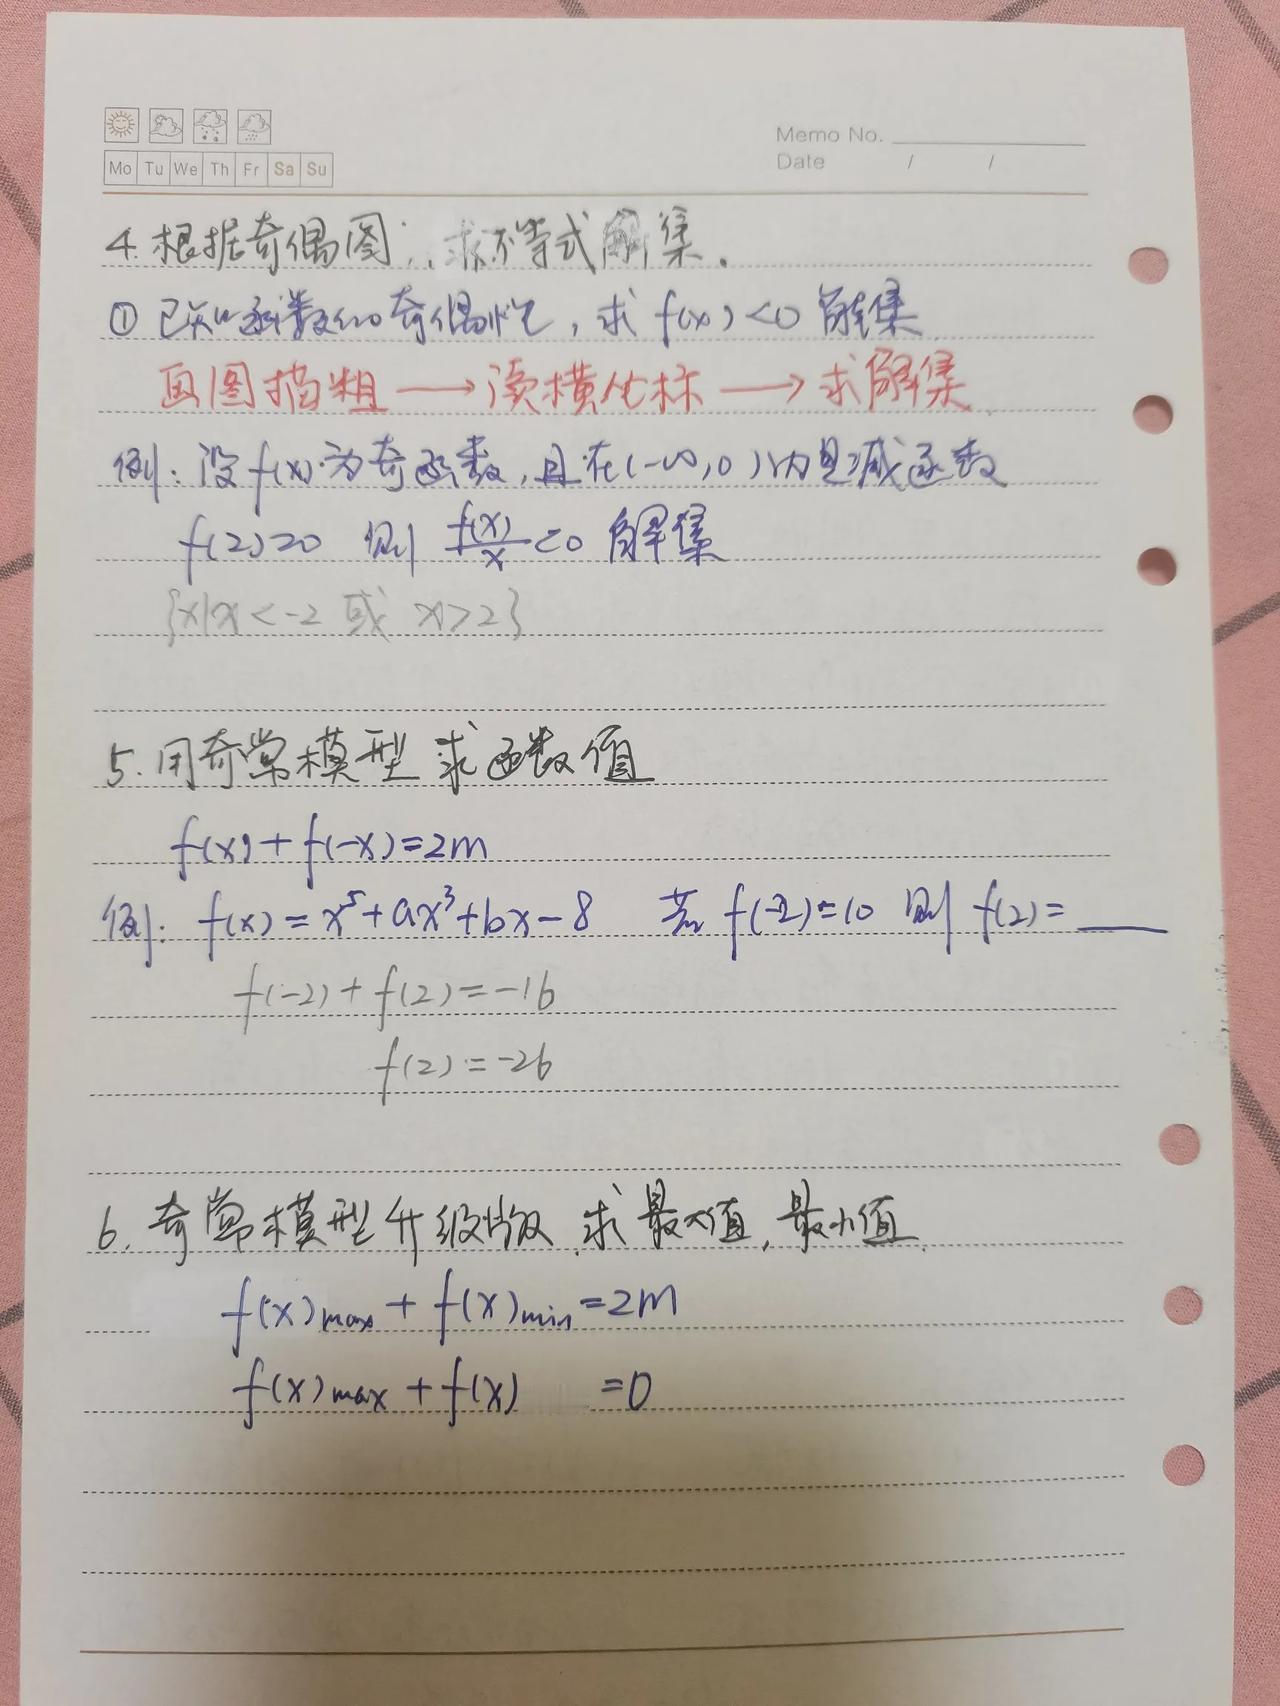 Mo Tu We Th Fr Sa Su
Memo No.
Date / /
4. 根据奇偶图 求不等式解集.
① 已知函数的奇偶性, 求 f(x)<0 解集
画图描粗 → 读横坐标 → 求解集
例: 设 f(x) 为奇函数, 且在(-∞,0)内是减函数
f(2)=0 则 f(x)/x <0 解集
{x|x<-2 或 x>2}
5. 用奇常模型 求函数值
f(x)+f(-x)=2m
例: f(x)=x⁵+ax³+bx-8 若 f(-2)=10 则 f(2)=
f(-2)+f(2)=-16
f(2)=-26
6. 奇常模型升级版 求最大值, 最小值
f(x)max+f(x)min=2m
f(x)max+f(x) =0